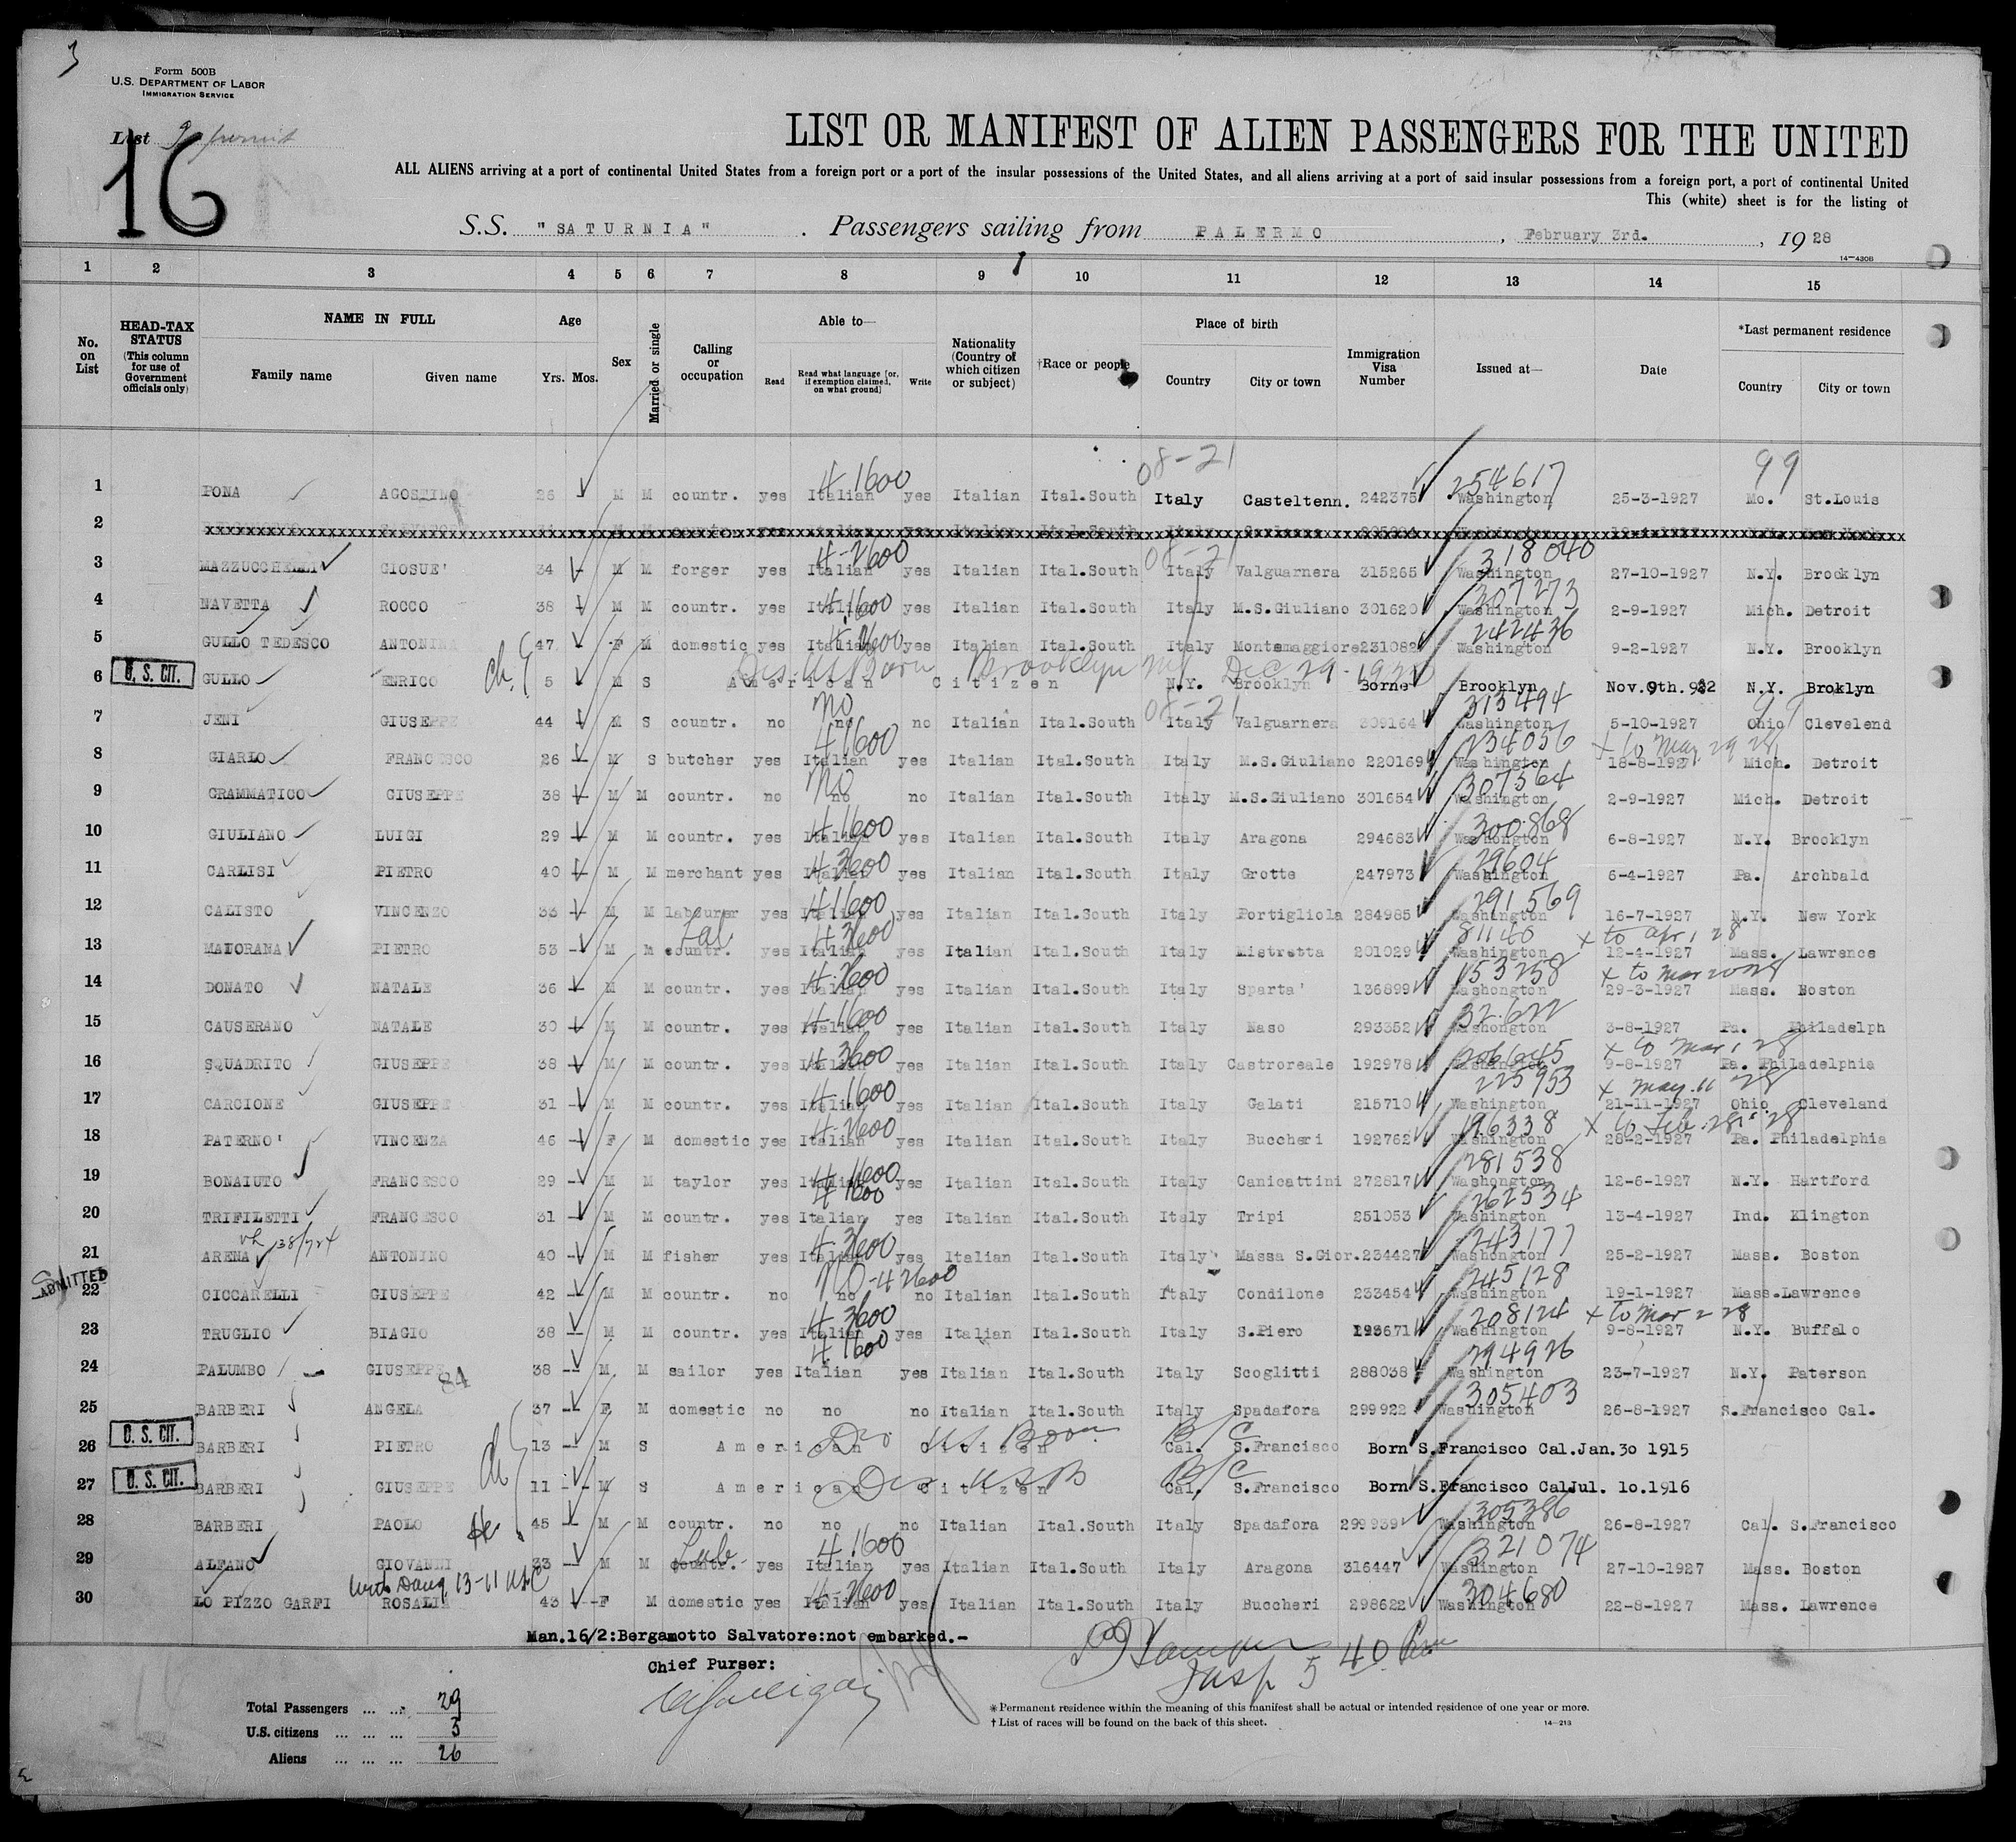 3
Form 500B
U.S. DEPARTMENT OF LABOR
IMMIGRATION SERVICE
List
16
LIST OR MANIFEST OF ALIEN PASSENGERS FOR THE UNITED
ALL ALIENS arriving at a port of continental United States from a foreign port or a port of the insular possessions of the United States, and all aliens arriving at a port of said insular possessions from a foreign port, a port of continental United
This (white) sheet is for the listing of
S.S. "SATURNIA" . Passengers sailing from PALERMO, February 3rd., 1928
14—430B
1 2 3 4 5 6 7 8 9 10 11 12 13 14 15
No. on List
HEAD-TAX STATUS (This column for use of Government officials only)
NAME IN FULL
Family name Given name
Age
Yrs. Mos.
Sex
Married or single
Calling or occupation
Able to—
Read
Read what language [or, if exemption claimed, on what ground]
Write
Nationality (Country of which citizen or subject)
†Race or people
Place of birth
Country City or town
Immigration Visa Number
Issued at—
Date
*Last permanent residence
Country City or town
08-21 99
4 1600 254617
1 PONA AGOSTINO 26 M M countr. yes Italian yes Italian Ital.South Italy Casteltenn. 242375 Washington 25-3-1927 Mo. St.Louis
2
4-2600 318040
3 MAZZUCCHELLI GIOSUE' 34 M M forger yes Italian yes Italian Ital.South Italy Valguarnera 315265 Washington 27-10-1927 N.Y. Brooklyn
4 1600 307273
4 NAVETTA ROCCO 38 M M countr. yes Italian yes Italian Ital.South Italy M.S.Giuliano 301620 Washington 2-9-1927 Mich. Detroit
4 2600 242436
5 GULLO TEDESCO ANTONINA 47 F M domestic yes Italian yes Italian Ital.South Italy Montemaggiore 231082 Washington 9-2-1927 N.Y. Brooklyn
Born Brooklyn NY Dec 29-
U. S. CIT.
6 GULLO ENRICO 5 M S American Citizen N.Y. Brooklyn Borne Brooklyn Nov.9th. N.Y. Broklyn
no 08-21 313494
7 JENI GIUSEPPE 44 M S countr. no no no Italian Ital.South Italy Valguarnera 309164 Washington 5-10-1927 Ohio Clevelend
4 1600 234056 x to May 29 28
8 GIARLO FRANCESCO 26 M S butcher yes Italian yes Italian Ital.South Italy M.S.Giuliano 220169 Washington 18-8-1927 Mich. Detroit
no 307564
9 GRAMMATICO GIUSEPPE 38 M M countr. no no no Italian Ital.South Italy M.S.Giuliano 301654 Washington 2-9-1927 Mich. Detroit
4 1600 300868
10 GIULIANO LUIGI 29 M M countr. yes Italian yes Italian Ital.South Italy Aragona 294683 Washongton 6-8-1927 N.Y. Brooklyn
4 3600 29604
11 CARLISI PIETRO 40 M M merchant yes Italian yes Italian Ital.South Italy Grotte 247973 Washington 6-4-1927 Pa. Archbald
4 1600 291569
12 CALISTO VINCENZO 33 M M labourer yes Italian yes Italian Ital.South Italy Portigliola 284985 Washington 16-7-1927 N.Y. New York
Lab 4 3600 81140 x to Apr 1 28
13 MAIORANA PIETRO 53 M M countr. yes Italian yes Italian Ital.South Italy Mistretta 201029 Washington 12-4-1927 Mass. Lawrence
4-2600 153258
14 DONATO NATALE 36 M M countr. yes Italian yes Italian Ital.South Italy Sparta' 136899 Washongton 29-3-1927 Mass. Boston
4-1600 32622
15 CAUSERANO NATALE 30 M M countr. yes Italian yes Italian Ital.South Italy Naso 293352 Washongton 3-8-1927 Pa. Philadelph
4 3600 206645 x to Mar 1 28
16 SQUADRITO GIUSEPPE 38 M M countr. yes Italian yes Italian Ital.South Italy Castroreale 192978 Washington 9-8-1927 Pa. Philadelphia
4-1600 225953 x May 11 28
17 CARCIONE GIUSEPPE 31 M M countr. yes Italian yes Italian Ital.South Italy Galati 215710 Washington 21-11-1927 Ohio Cleveland
4-2600 196338 x to Feb 28 28
18 PATERNO' VINCENZA 46 F M domestic yes Italian yes Italian Ital.South Italy Buccheri 192762 Washington 28-2-1927 Pa. Philadelphia
4 1600 281538
19 BONAIUTO FRANCESCO 29 M M taylor yes Italian yes Italian Ital.South Italy Canicattini 272817 Washongton 12-6-1927 N.Y. Hartford
4 1600 262534
20 TRIFILETTI FRANCESCO 31 M M countr. yes Italian yes Italian Ital.South Italy Tripi 251053 Washington 13-4-1927 Ind. Klington
4-3600 243177
21 ARENA ANTONINO 40 M M fisher yes Italian yes Italian Ital.South Italy Massa S.Gior. 234427 Washongton 25-2-1927 Mass. Boston
ADMITTED
NO-42600 245128
22 CICCARELLI GIUSEPPE 42 M M countr. no no no Italian Ital.South Italy Condilone 233454 Washington 19-1-1927 Mass. Lawrence
4 3600 208124 x to Mar 2 28
23 TRUGLIO BIAGIO 38 M M countr. yes Italian yes Italian Ital.South Italy S.Piero Washington 9-8-1927 N.Y. Buffalo
4 1600 294926
24 PALUMBO GIUSEPPE 84 38 M M sailor yes Italian yes Italian Ital.South Italy Scoglitti 288038 Washington 23-7-1927 N.Y. Paterson
305403
25 BARBERI ANGELA 37 F M domestic no no no Italian Ital.South Italy Spadafora 299922 Washington 26-8-1927 S.Francisco Cal.
U. S. CIT.
US Born B/C
26 BARBERI PIETRO 13 M S American Citizen Cal. S.Francisco Born S.Francisco Cal.Jan.30 1915
U. S. CIT.
B/C
27 BARBERI GIUSEPPE 11 M S American Citizen Cal. S.Francisco Born S.Francisco Cal.Jul. 10.1916
305386
28 BARBERI PAOLO 45 M M countr. no no no Italian Ital.South Italy Spadafora 299939 Washington 26-8-1927 Cal. S.Francisco
Lab 4 1600 321074
29 ALFANO GIOVANNI 33 M M countr. yes Italian yes Italian Ital.South Italy Aragona 316447 Washington 27-10-1927 Mass. Boston
with Daug 13-11 4-2600 304680
30 LO PIZZO GARFI ROSALIA 43 F M domestic yes Italian yes Italian Ital.South Italy Buccheri 298622 Washington 22-8-1927 Mass. Lawrence
Man.16/2:Bergamotto Salvatore:not embarked.-
Chief Purser:
Insp 5 40 Pm
Total Passengers ... ... 29
U.S. citizens ... ... ... 3
Aliens ... ... ... 26
*Permanent residence within the meaning of this manifest shall be actual or intended residence of one year or more.
†List of races will be found on the back of this sheet.
14—213